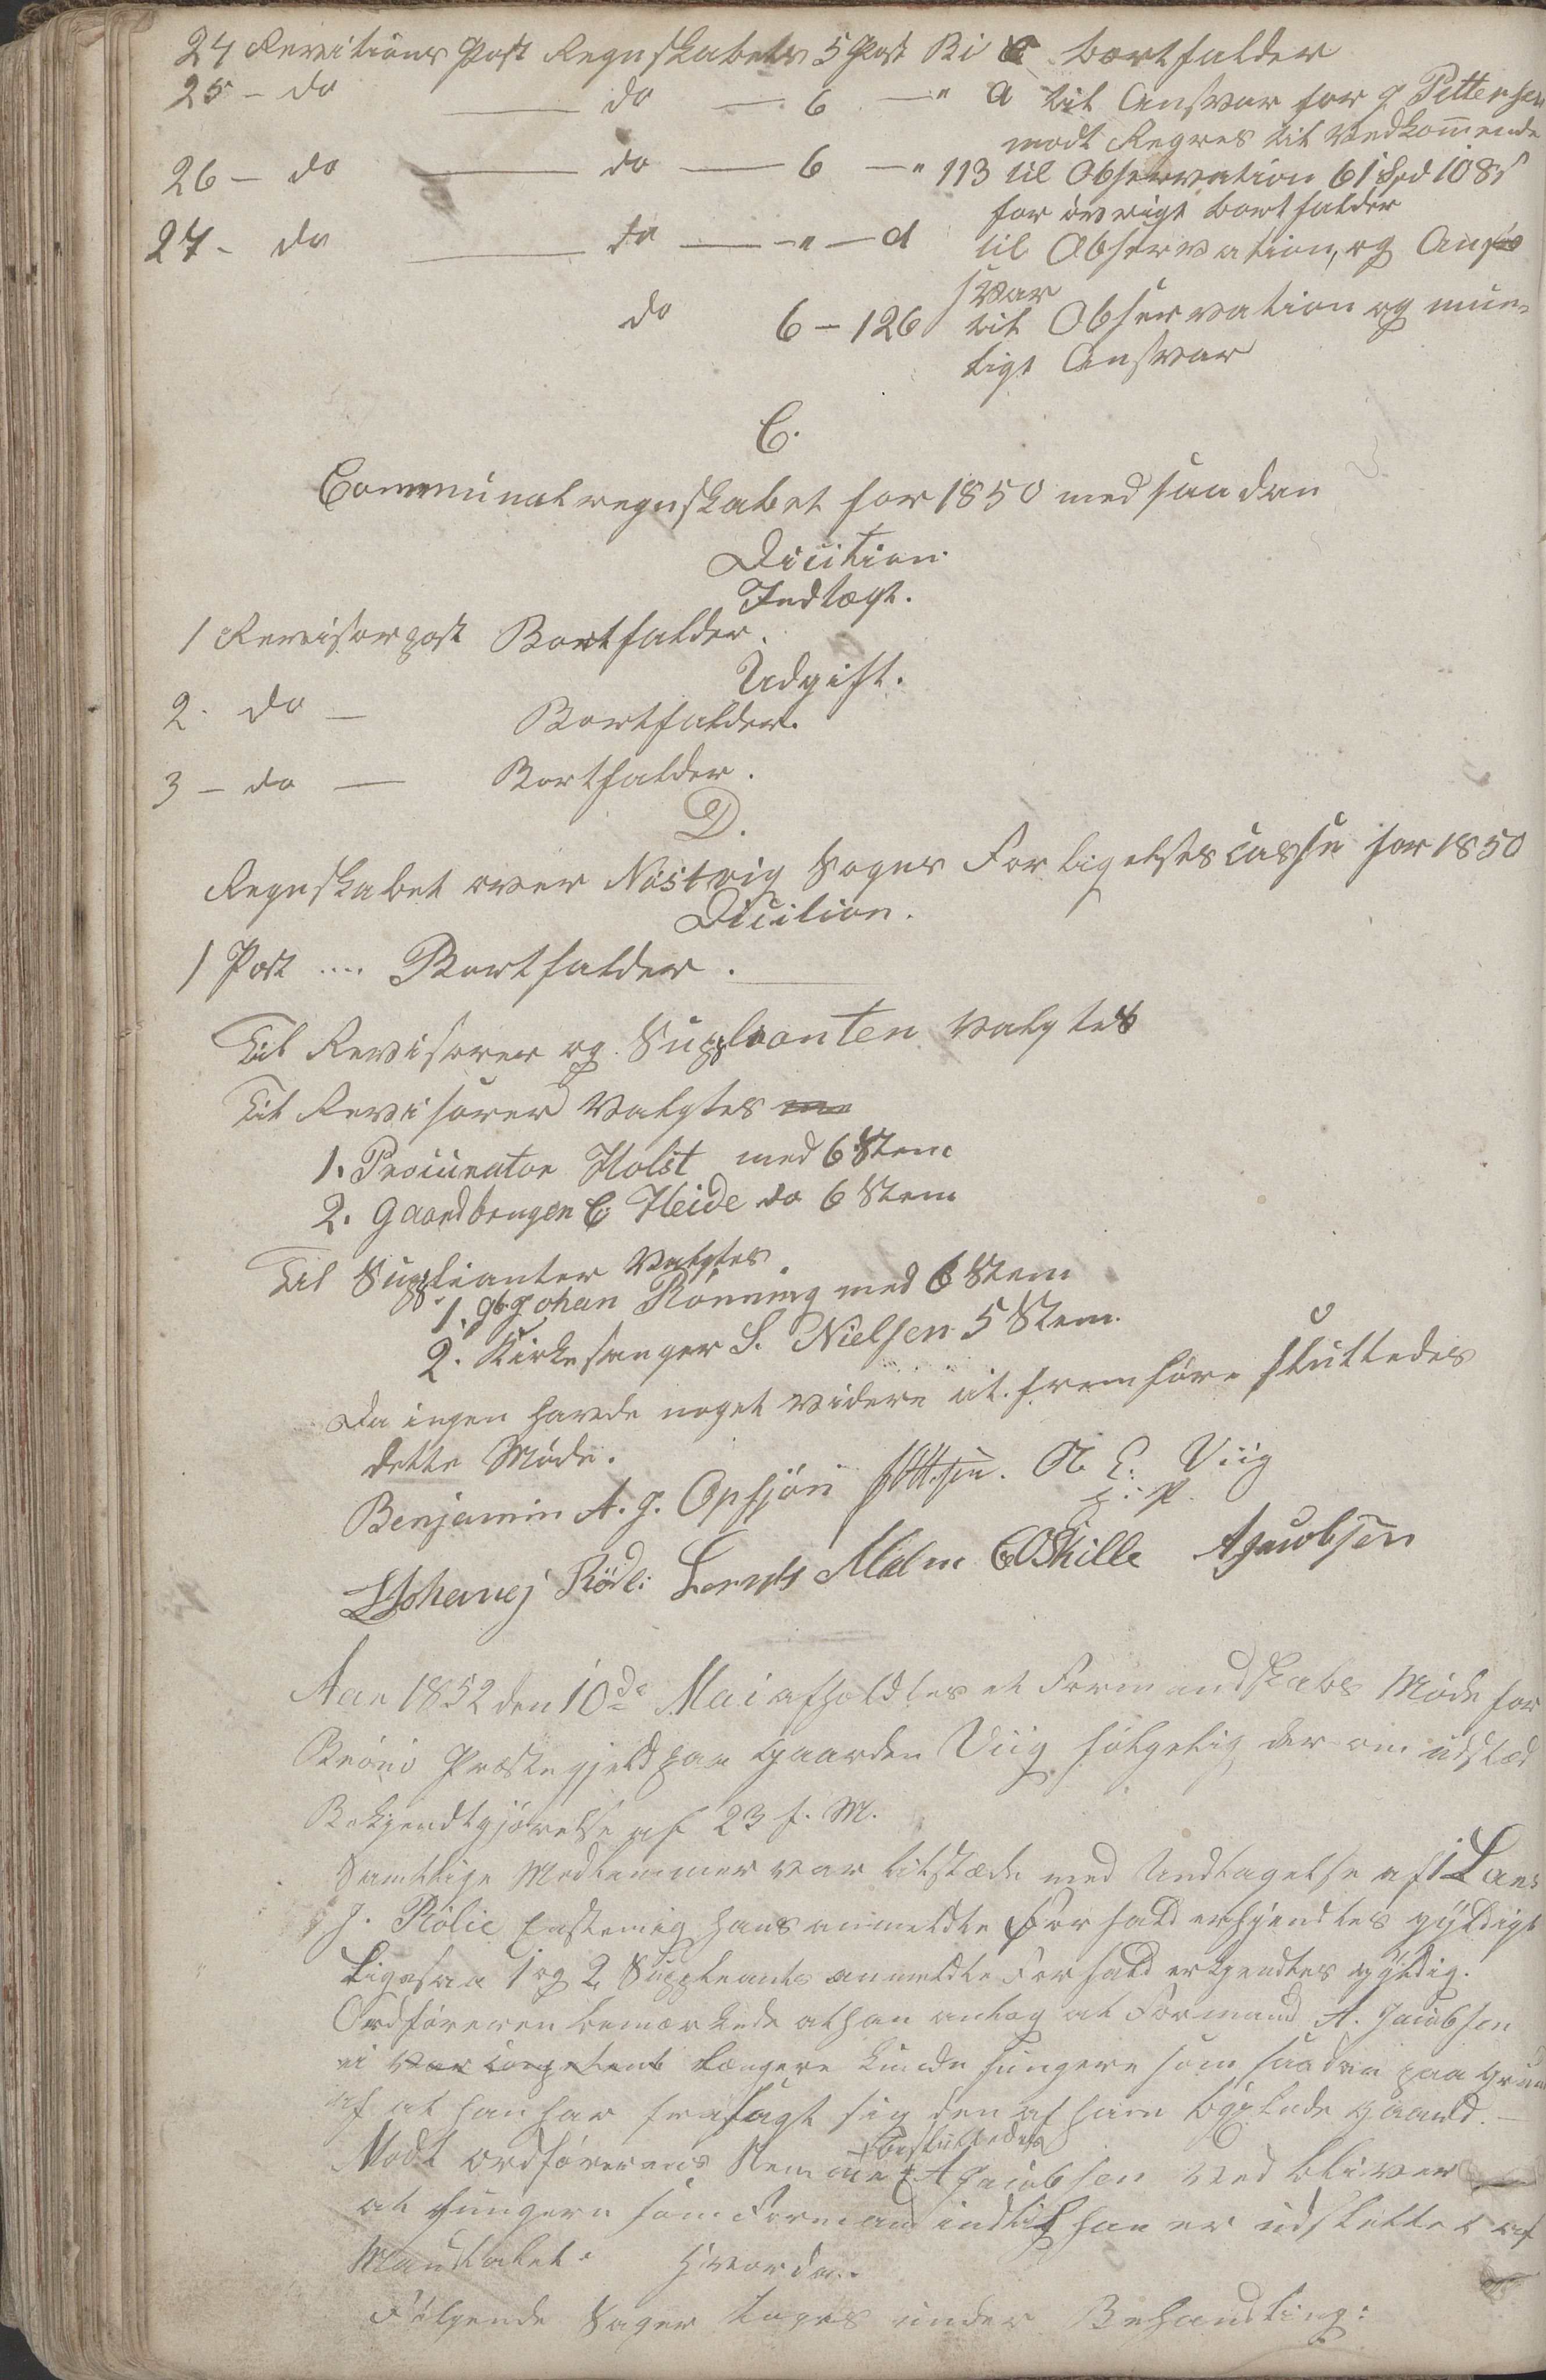 24 Revitions Post Regnskabets 5 Post Bi c bortfalder
25 - do — do — 6 — " a til Ansvar for P Pettersen
modt Regres til Vedkommende
26 - do — do — 6 — " 113 til Observation 61 Spd 108 s
for øvrigt bortfalder
27 - do — do — " — d til Observation, og An
svar
do 6 - 126 til Observation og mue-
ligt Ansvar
C.
Communalregnskabet for 1850 med saadan
Dicition
Indtægt.
1 Revisorpost Bortfalder.
Udgift.
2. do — Bortfalder.
3 - do — Bortfalder.
D.
Regnskabet over Nøstvig Sogns Forligelsescasse for 1850
Dicition.
1 Post .... Bortfalder.
Til Revisorer og Suppleanten valgtes
Til Revisorer valgtes
1. Procurator Holst med 6 Stem
2. Gaardbruger C. Heide do 6 Stem
Til Supplianter valgtes
1. Gb. Johan Rønning med 6 Stem
2. Kirkesanger S. Nielsen 5 Stem.
Da ingen havde noget videre at fremføre sluttedes
dette Møde.
Benjamin A. J. Opsjøn Ottesen. O. C. Viig
m. f. P.
L Johanes Rødli Lornts Malm C O Skille A Jacobsen
Aar 1852 den 10de Mai afholdtes et Formandskabs Møde for
Brønø Præstegjeld paa Gaarden Viig følgelig der om udstæd
Bekjendtgjørelse af 23 f. M.
Samtlige Medlemmer var tilstæde med Undtagelse af Lars
J. Rølie Enstemig hans anmeldte Forfald erkjendtes gyldigt
Ligesaa 1 og 2 Suppleants anmeldte Forfald erkjendtes gyldig.
Ordføreren bemærkede at han antog at Formand A. Jacobsen
ei var competent længere kunde fungere som saadan paa Grun
af at han har frasagt sig den af ham bøxlede Gaard. —
besluttedes
Modt Ordførerens Stemme A Jacobsen ved bliver
at fungere som Formand indtil han er udslettet af
Mandtalet. Hvorda..
Følgende Sager toges under Behandling: